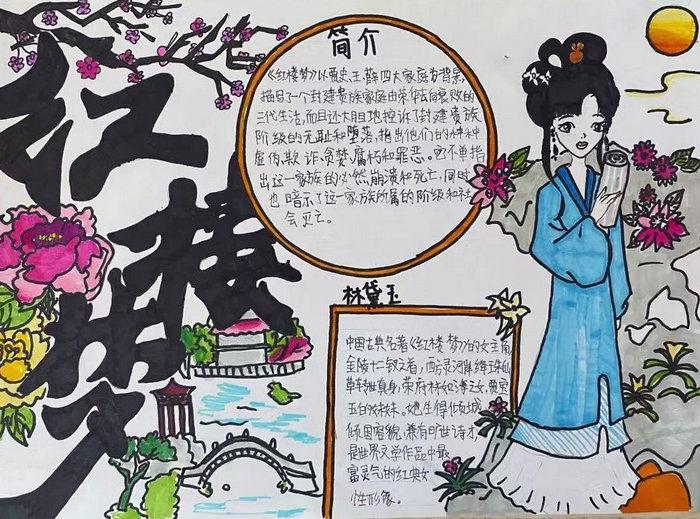 红楼梦
简介
《红楼梦》以贾、史、王、薛四大家庭为背景,
描写了一个封建贵族家庭由荣华走向衰败的
三代生活,而且还大胆地控诉了封建贵族
阶级的无耻和堕落,指出他们的种种
虚伪、欺诈、贪婪、腐朽和罪恶。它不单指
出这一家族的必然崩溃和死亡,同时
也暗示了这一家族所属的阶级和社
会灭亡。
林黛玉
中国古典名著《红楼梦》的女主角,
金陵十二钗之首,西方灵河岸绛珠仙
草转世真身,荣府
玉的妹妹。她生得倾城
倾国容貌,兼有旷世诗才,
是世界文学作品中最
富灵气的
性形象。